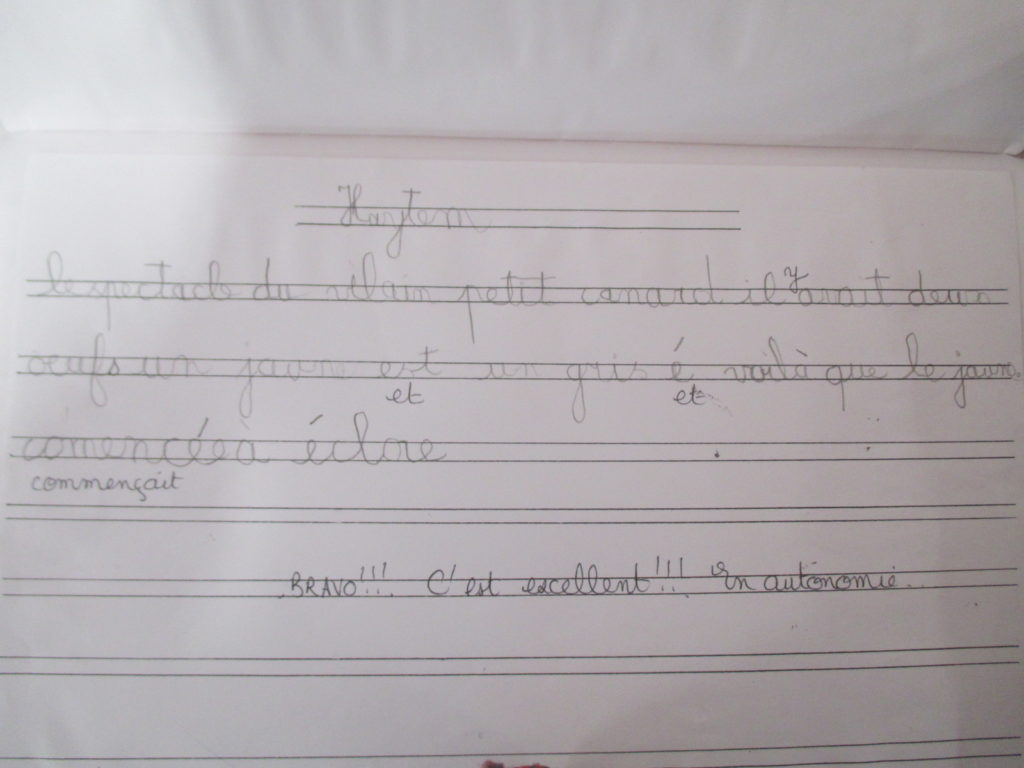 Haytem
le spectacle du vilain petit canard il y avait deux
oeufs un jaune est un gris é voilà que le jaune
et et
comencéeà éclore
commençait
BRAVO!!! C'est excellent!!! En autonomie..